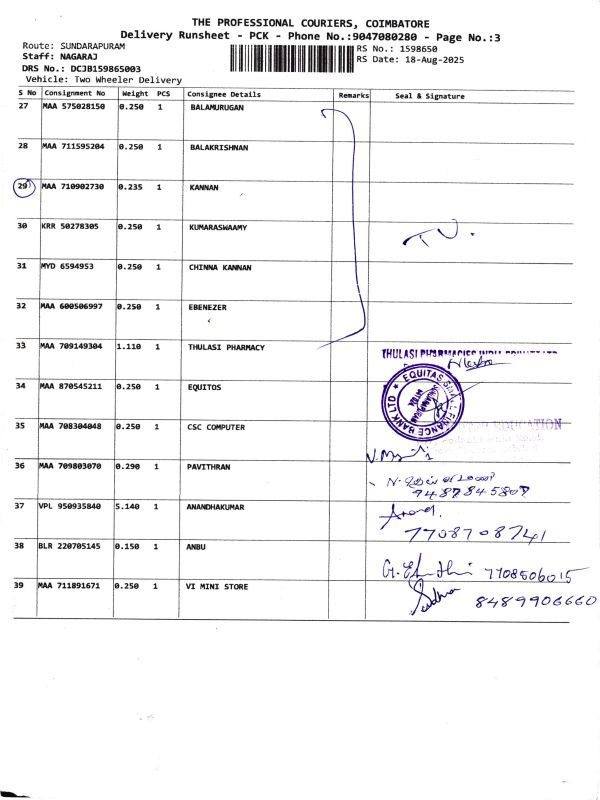 THE PROFESSIONAL COURIERS, COIMBATORE
Delivery Runsheet - PCK - Phone No.:9047080280 - Page No.:3
Route: SUNDARAPURAM
RS No.: 1598650
Staff: NAGARAJ
RS Date: 18-Aug-2025
DRS No.: DCJB159865003
Vehicle: Two Wheeler Delivery
S No Consignment No Weight PCS Consignee Details Remarks Seal & Signature
27 MAA 575028150 0.250 1 BALAMURUGAN
28 MAA 711595204 0.250 1 BALAKRISHNAN
29 MAA 710902730 0.235 1 KANNAN
30 KRR 50278305 0.250 1 KUMARASWAAMY
31 MYD 6594953 0.250 1 CHINNA KANNAN
32 MAA 600506997 0.250 1 EBENEZER
33 MAA 709149304 1.110 1 THULASI PHARMACY
THULASI PHARMACIES INDIA PRIVATE LTD
34 MAA 870545211 0.250 1 EQUITOS
EQUITAS SMALL FINANCE BANK LTD
35 MAA 708304048 0.250 1 CSC COMPUTER
EDUCATION
36 MAA 709803070 0.290 1 PAVITHRAN
9487845807
37 VPL 950935840 5.140 1 ANANDHAKUMAR
Anand.
7708708741
38 BLR 220705145 0.150 1 ANBU
7708506015
39 MAA 711891671 0.250 1 VI MINI STORE
Sudha 8489906660